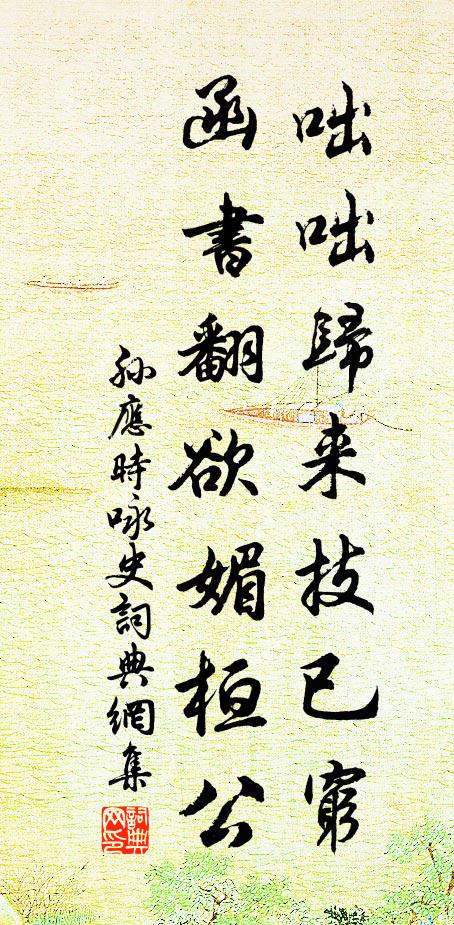 咄咄歸来技已窮
函書翻欲媚桓公
孫應時咏史詞典網集
詞典网印